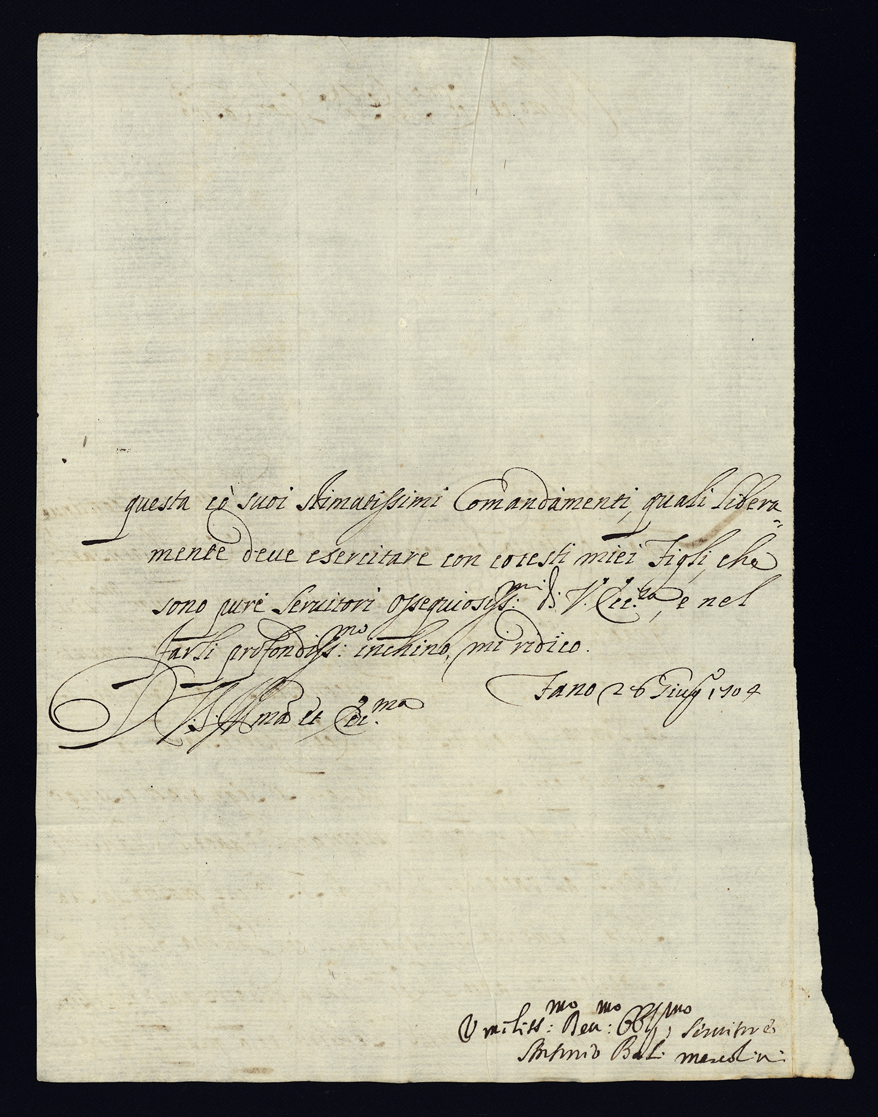 questa cò suoi stimatissimi Comandamenti, quali libera=
mente deve esercitare con cotesti miei Figli, che
sono pure Servitori ossequiosiss:mi di V. Ecc:za, e nel
farli profondiss:mo inchino, mi ridico.
Fano 26 Giugo 1704
D V. S. Illma et Ecc:ma
Umiliss:mo Dev:mo Obblmo Servitore
Antonio Bal: Marcolini